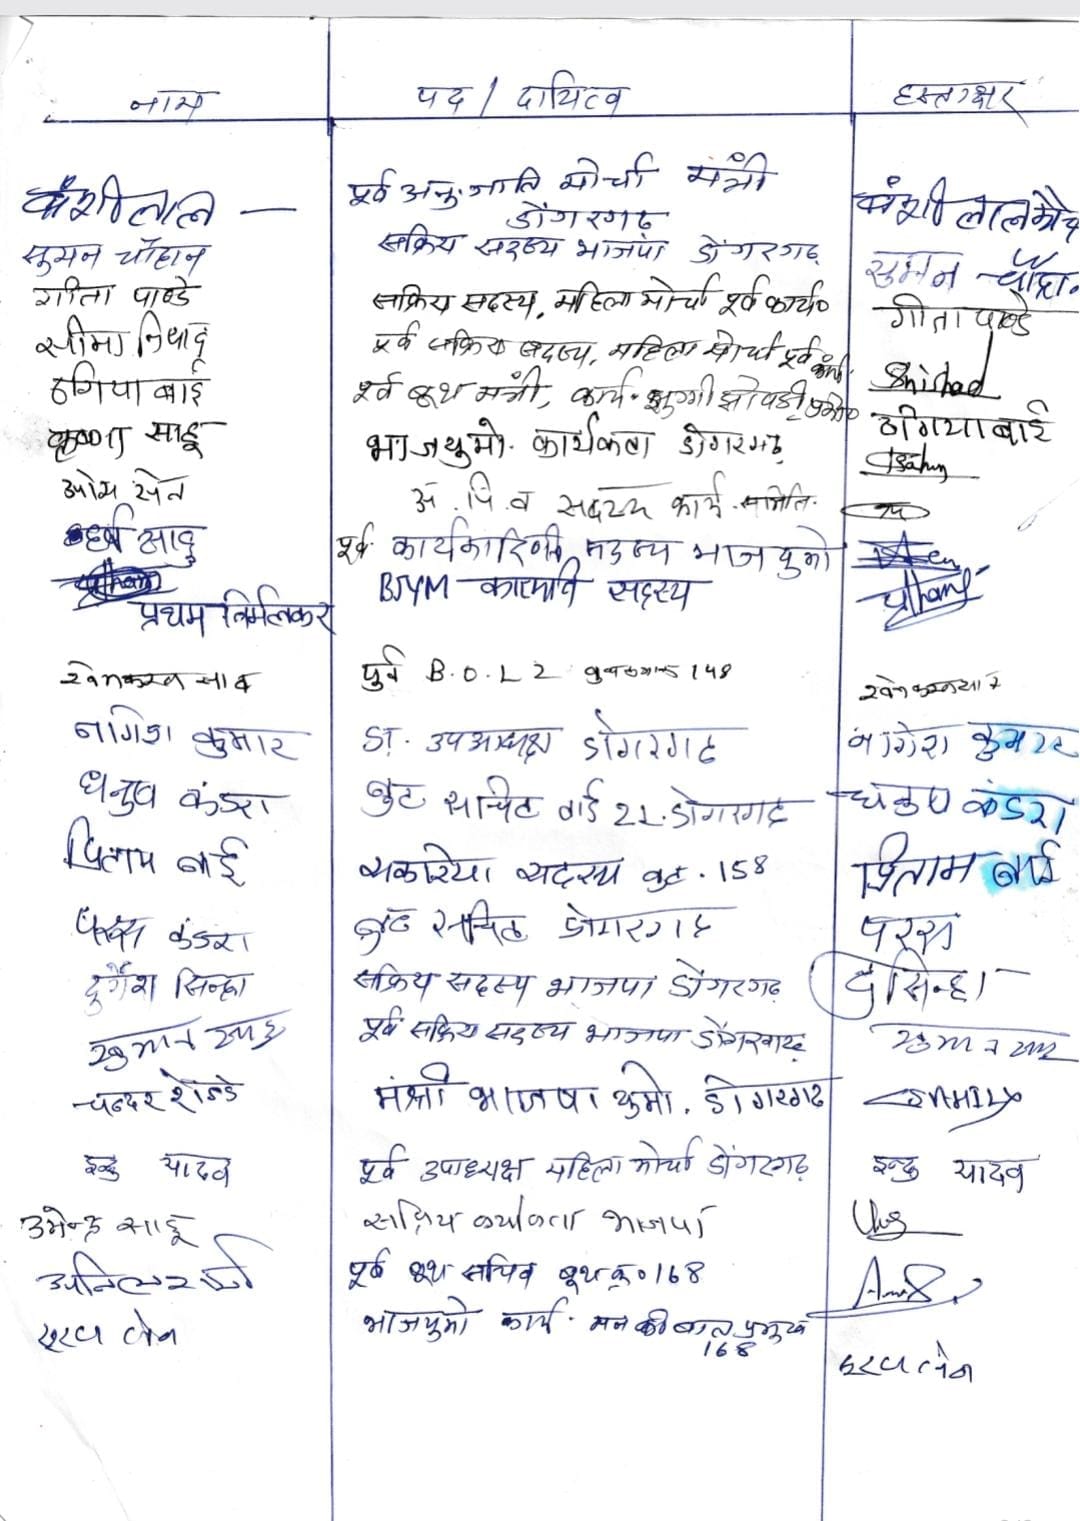 नाम पद / दायित्व हस्ताक्षर
वंशीलाल — पूर्व अनु. जाति मोर्चा मंत्री वंशीलाल
डोंगरगढ़
सुमन चौहान सक्रिय सदस्य भाजपा डोंगरगढ़ सुमन चौहान
गीता पाण्डे सक्रिय सदस्य, महिला मोर्चा पूर्व कार्य० गीता पाण्डे
सीमा निषाद पूर्व सक्रिय सदस्य, महिला मोर्चा पूर्व कार्य. Snishad
ठगिया बाई पूर्व बूथ मंत्री, कार्य. झुग्गी झोपडी ठगिया बाई
कृष्णा साहू भाजयुमो. कार्यकर्ता डोंगरगढ़
ओम सेन अ. पि. व सदस्य कार्य. समिति.
हर्ष साहु पूर्व कार्यकारिणी सदस्य भाजयुमो
BJYM सदस्य
प्रथम निर्मलकर
पूर्व B.O.L 2 148
नागेश कुमार उपअध्यक्ष डोंगरगढ नागेश कुमार
धनुष कंडरा बुट सचिव वार्ड 22. डोंगरगढ धनुष कंडरा
प्रिताम बाई सकरिया सदस्य बुट. 158 प्रिताम बाई
परस कंडरा बुट सचिव डोंगरगढ परस
दुर्गेश सिन्हा सक्रिय सदस्य भाजपा डोंगरगढ़ दु सिन्हा
पूर्व सक्रिय सदस्य भाजपा डोंगरगढ़
चन्दर शेन्डे मंत्री भाजपा युमो. डोंगरगढ
इन्दु यादव पूर्व उपाध्यक्ष महिला मोर्चा डोंगरगढ़ इन्दु यादव
उमेन्द्र साहू सक्रिय कार्यकर्ता भाजपा
पूर्व बूथ सचिव बूथ क्र० 168
भाजयुमो कार्य. मन की बात प्रमुख
168